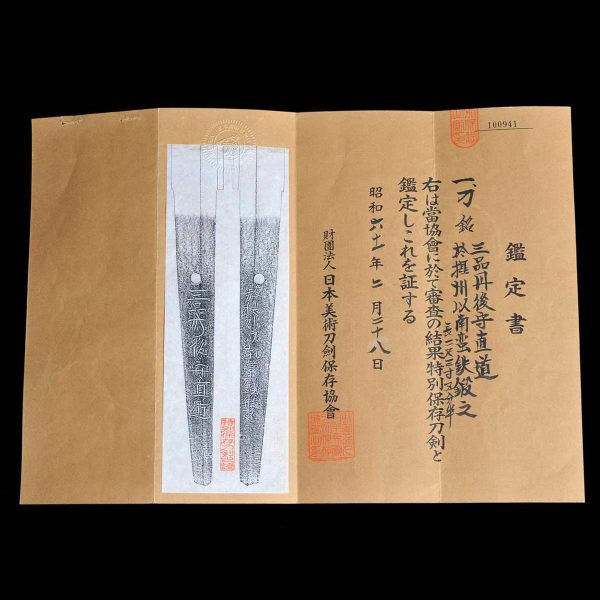 100941
鑑定書
一、刀 銘 三品丹後守直道
於摂州以南蛮鉄鍛之
長二尺三寸五分半
右は當協會に於て審査の結果特別保存刀剣と
鑑定しこれを証する
昭和六十一年二月二十八日
財團法人 日本美術刀剣保存協會